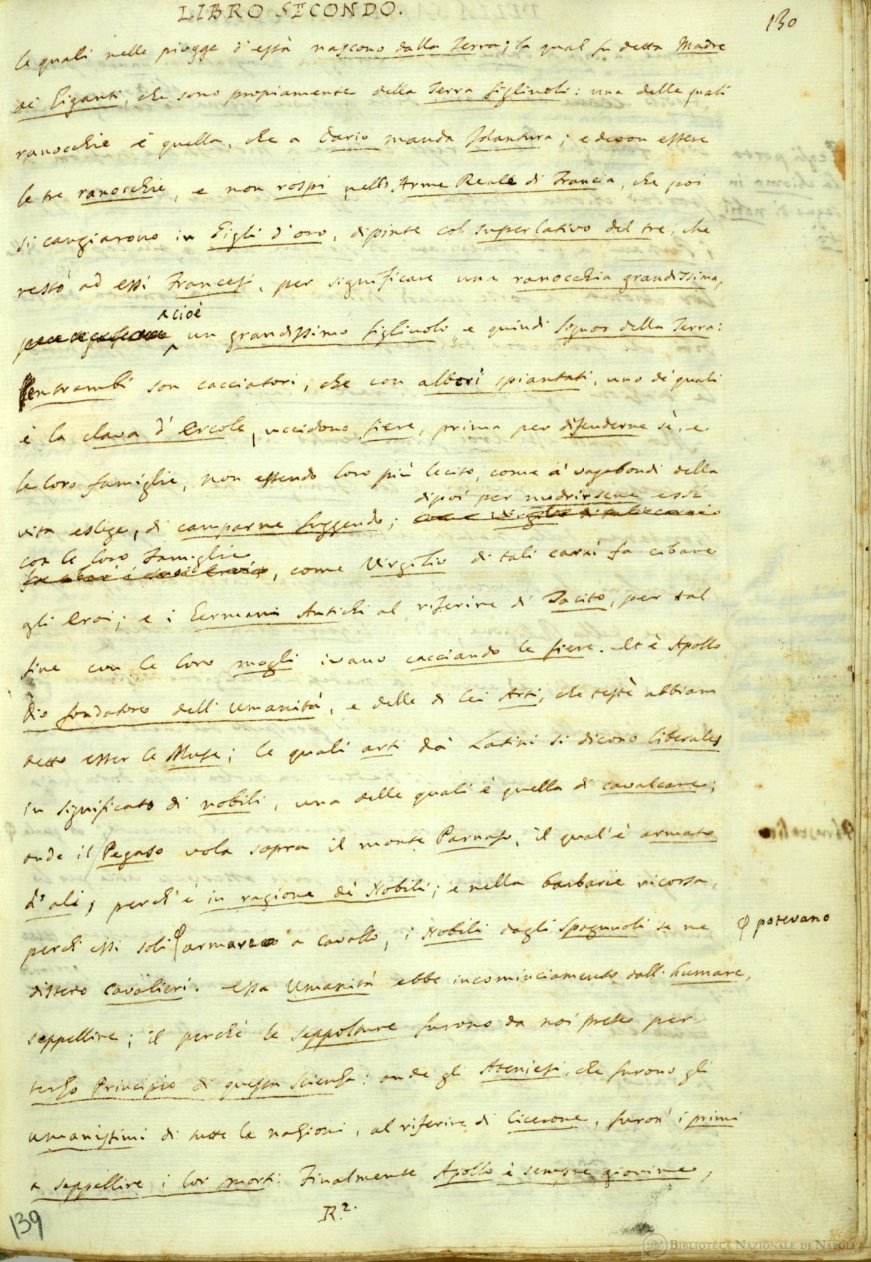 LIBRO SECONDO.
130
le quali nelle piogge d'està nascono dalla Terra; la qual fu detta Madre
de' Giganti, che sono propiamente della Terra figliuoli: una delle quali
ranocchie è quella, che a Dario manda Idantura; e devon essere
le tre ranocchie, e non rospi nell'Arme Reale di Francia, che poi
si cangiarono in Gigli d'oro, dipinte col superlativo del tre, che
restò ad essi Francesi, per significare una ranocchia grandissima,
cioè
un grandissimo figliuolo, e quindi Signor della Terra:
entrambi son cacciatori, che con alberi spiantati, uno de' quali
è la clava d'Ercole, uccidono fiere, prima per difenderne sè, e
le loro famiglie, non essendo loro più lecito, come a' vagabondi della
dipoi per nudrirsene essi
vita eslege, di camparne fuggendo;
con le loro famiglie
, come Virgilio di tali carni fa cibare
gli Eroi; e i Germani Antichi al riferire di Tacito, per tal
fine con le loro mogli ivano cacciando le fiere. Ed è Apollo
Dio fondatore dell'Umanità, e delle di lei Arti, che testè abbiam
detto esser le Muse; le quali arti da' Latini si dicono liberales
in significato di nobili, una delle quali è quella di cavalcare;
onde il Pegaso vola sopra il monte Parnaso, il qual'è armato
d'ali, perch'è in ragione de' Nobili; e nella barbarie ricorsa,
perch'essi soli φ armare a cavallo, i Nobili dagli Spagnuoli se ne
φ potevano
dissero cavalieri. Essa Umanità ebbe incominciamento dall'humare,
seppellire; il perchè le seppolture furono da noi prese per
terzo Principio di questa Scienza: onde gli Ateniesi, che furono gli
umanissimi di tutte le nazioni, al riferire di Cicerone, furon' i primi
a seppellire i lor morti. Finalmente Apollo è sempre giovine,
R.2.
139
BIBLIOTECA NAZIONALE DI NAPOLI